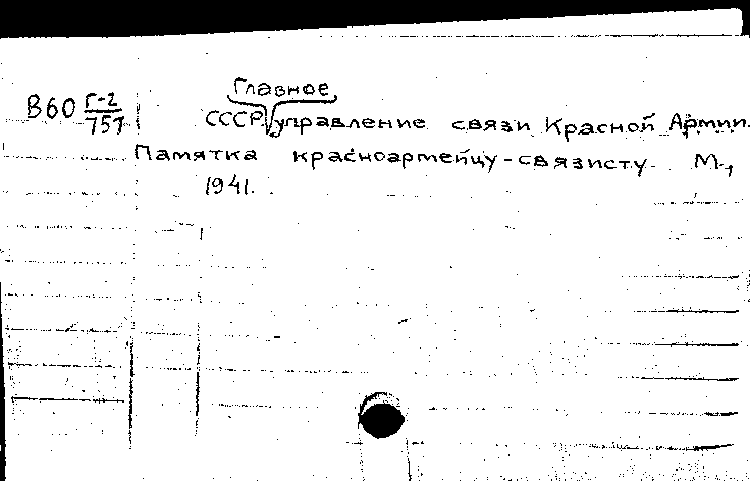 Главное
В60 Г-2/757 СССР. управление связи Красной Армии.
Памятка красноармейцу-связисту. М.,
1941.